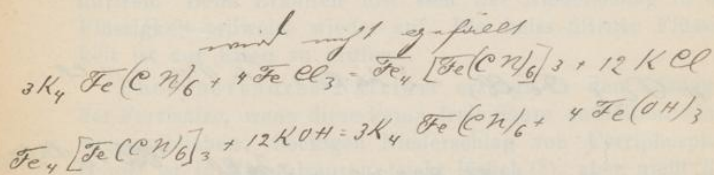 wird nicht gefällt
3K₄ Fe(CN)₆ + 4 FeCl₃ = Fe₄ [Fe(CN)₆]₃ + 12 KCl
Fe₄ [Fe(CN)₆]₃ + 12 KOH = 3K₄ Fe(CN)₆ + 4 Fe(OH)₃